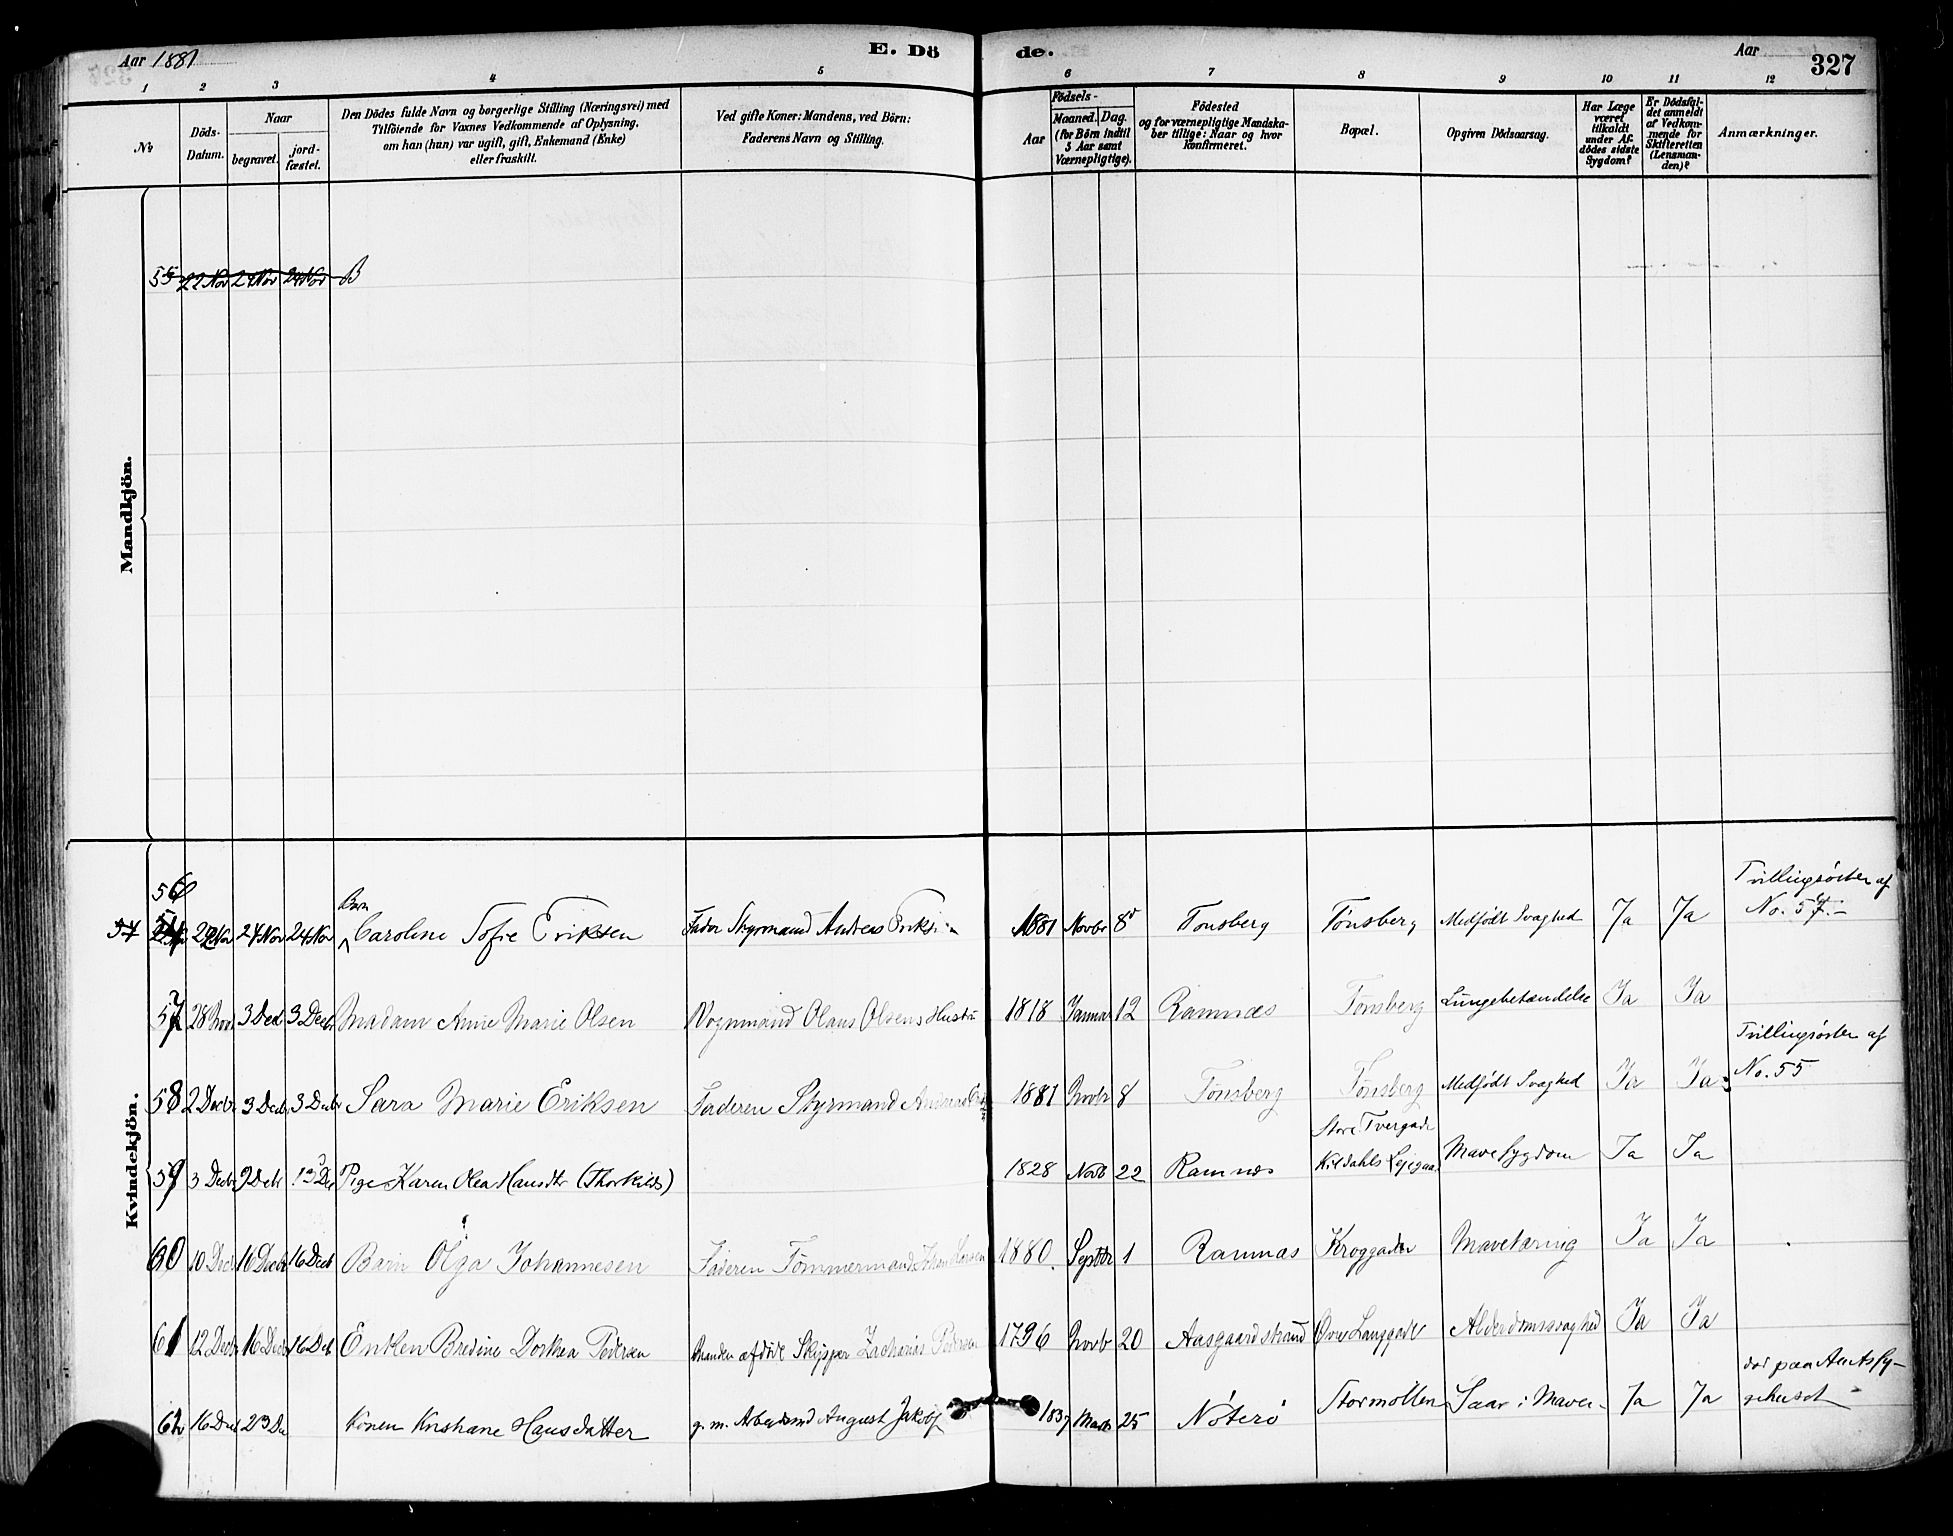 Aar 1881
E. Dö
de.
Aar
327
1 2 3 4 5 6 7 8 9 10 11 12
No
Döds-
Datum.
Naar
begravet.
jord-
fæstet.
Den Dödes fulde Navn og borgerlige Stilling (Næringsvei) med
Tilföiende for Voxnes Vedkommende af Oplysning,
om han (hun) var ugift, gift, Enkemand (Enke)
eller fraskilt.
Ved gifte Koner: Mandens, ved Börn:
Faderens Navn og Stilling.
Födsels-
Aar
Maaned.
Dag.
(for Börn indtil
5 Aar samt
Værnepligtige).
Födested
og for værnepligtige Mandska-
ber tillige: Naar og hvor
konfirmeret.
Bopæl.
Opgiven Dödsaarsag.
Har Læge
været
tilkaldt
under Af-
dödes sidste
Sygdom?
Er Dödsfal-
det anmeldt
af Vedkom-
mende for
Skifteretten
(Lensman-
den)?
Anmærkninger.
Mandkjön.
55 22 Nov 24 Nov 24 Nov B
Kvindekjön.
56
Barn
22 Nov 24 Nov 24 Nov Caroline Sofie Eriksen Fader Styrmand Andreas Eriksen 1881 Novbr 8 Tønsberg Tønsberg Medfødt Svaghed Ja Ja
Tvillingsøster af
No. 57.-
57 28 Nov 3 Dec 3 Decb Madam Anne Marie Olsen Vognmand Olaus Olsens Hustru 1818 Januar 12 Ramnæs Tønsberg Lungebetændelse Ja Ja
58 2 Decbr 3 Decb 3 Decbr Sara Marie Eriksen Faderen Styrmand Andreas 1881 Novbr 8 Tønsberg Tønsberg Medfødt Svaghed Ja Ja
Tvillingsøster af
No. 55
59 3 Decbr 9 Decbr 13 Dec Pige Karen Olea Hansdtr (Thorkilds) 1828 Novb 22 Ramnes
Store Tvergade
Kildahls
Mavesygdom Ja Ja
60 10 Decb 16 Decbr 16 Decb Barn Olga Johannesen Faderen Tømmermand Johan Larsen 1880. Septbr 1 Ramnæs Kroggaden Mavetæring Ja Ja
61 12 Decbr 16 Decbr 16 Decb Enken Bredine Dorthea Pedersen Manden afdøde Skipper Zacharias Pedersen 1796 Novb 20 Aasgaardstrand Øvre Langgade Alderdomssvaghed Ja Ja
62 16 Dec 23 De Konen Kristiane Hansdatter g. m. Arbeidsmd August Jakobs 1837 Marts 25 Nøterø Stormøllen Saar i Maven Ja Ja
var paa Amtssy-
gehuset